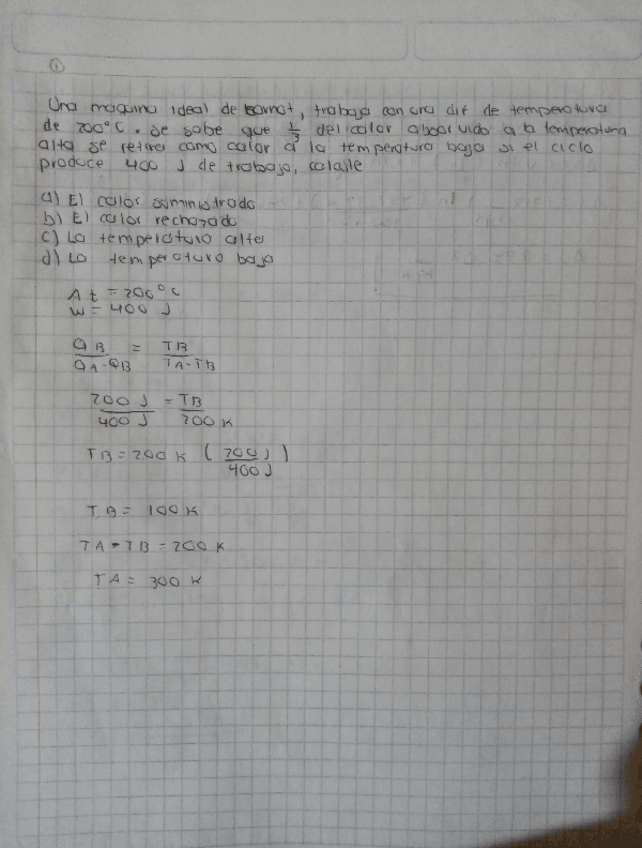 ①
Una maquina ideal de carnot, trabaja con una dif de temperatura
de 200°C. Se sabe que 1/3 del calor absorvido a la temperatura
alta se retira como calor a la temperatura baja si el ciclo
produce 400 J de trabajo, calcule
a) El calor suministrado
b) El calor rechazado
c) La temperatura alta
d) La temperatura baja
At = 200°C
W = 400 J
QB/QA-QB = TB/TA-TB
200 J/400 J = TB/200 K
TB = 200 K (200 J/400 J)
TB = 100 K
TA - TB = 200 K
TA = 300 K